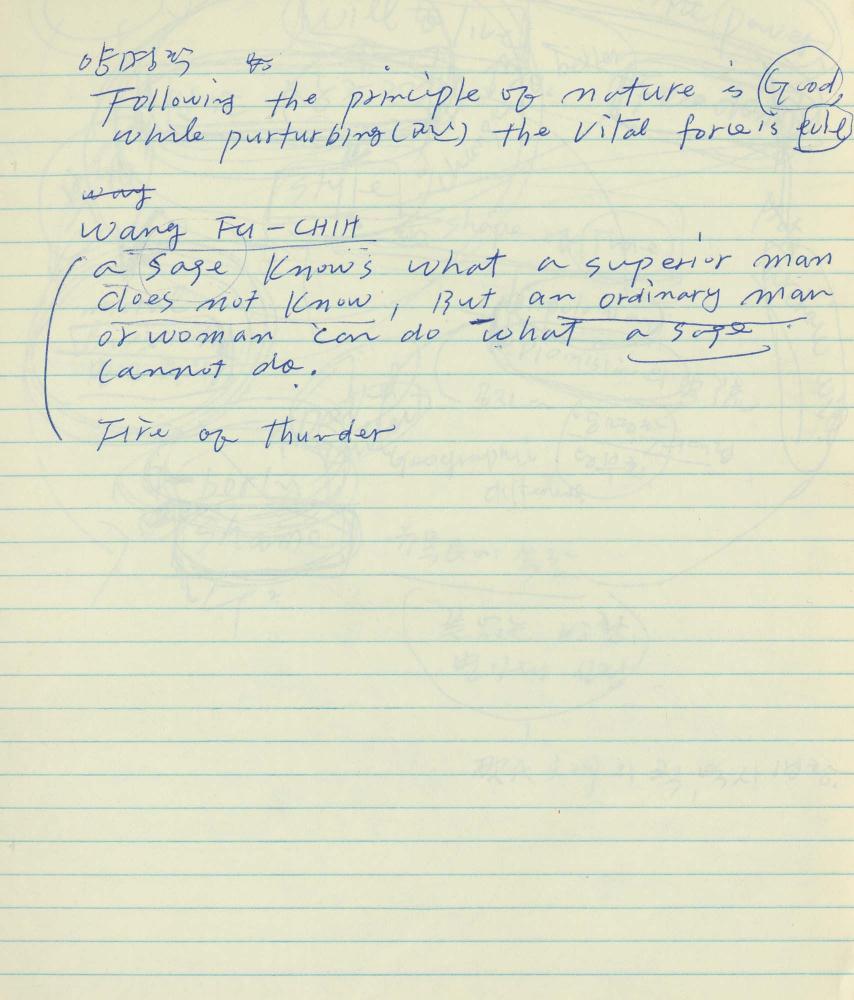 양명학
Following the principle of nature is Good,
while purturbing (교란) the vital force is evil
way
Wang Fu-CHIH
a sage Knows what a superior man
does not know, But an ordinary man
or woman can do what a sage
cannot do.
Fire of thunder